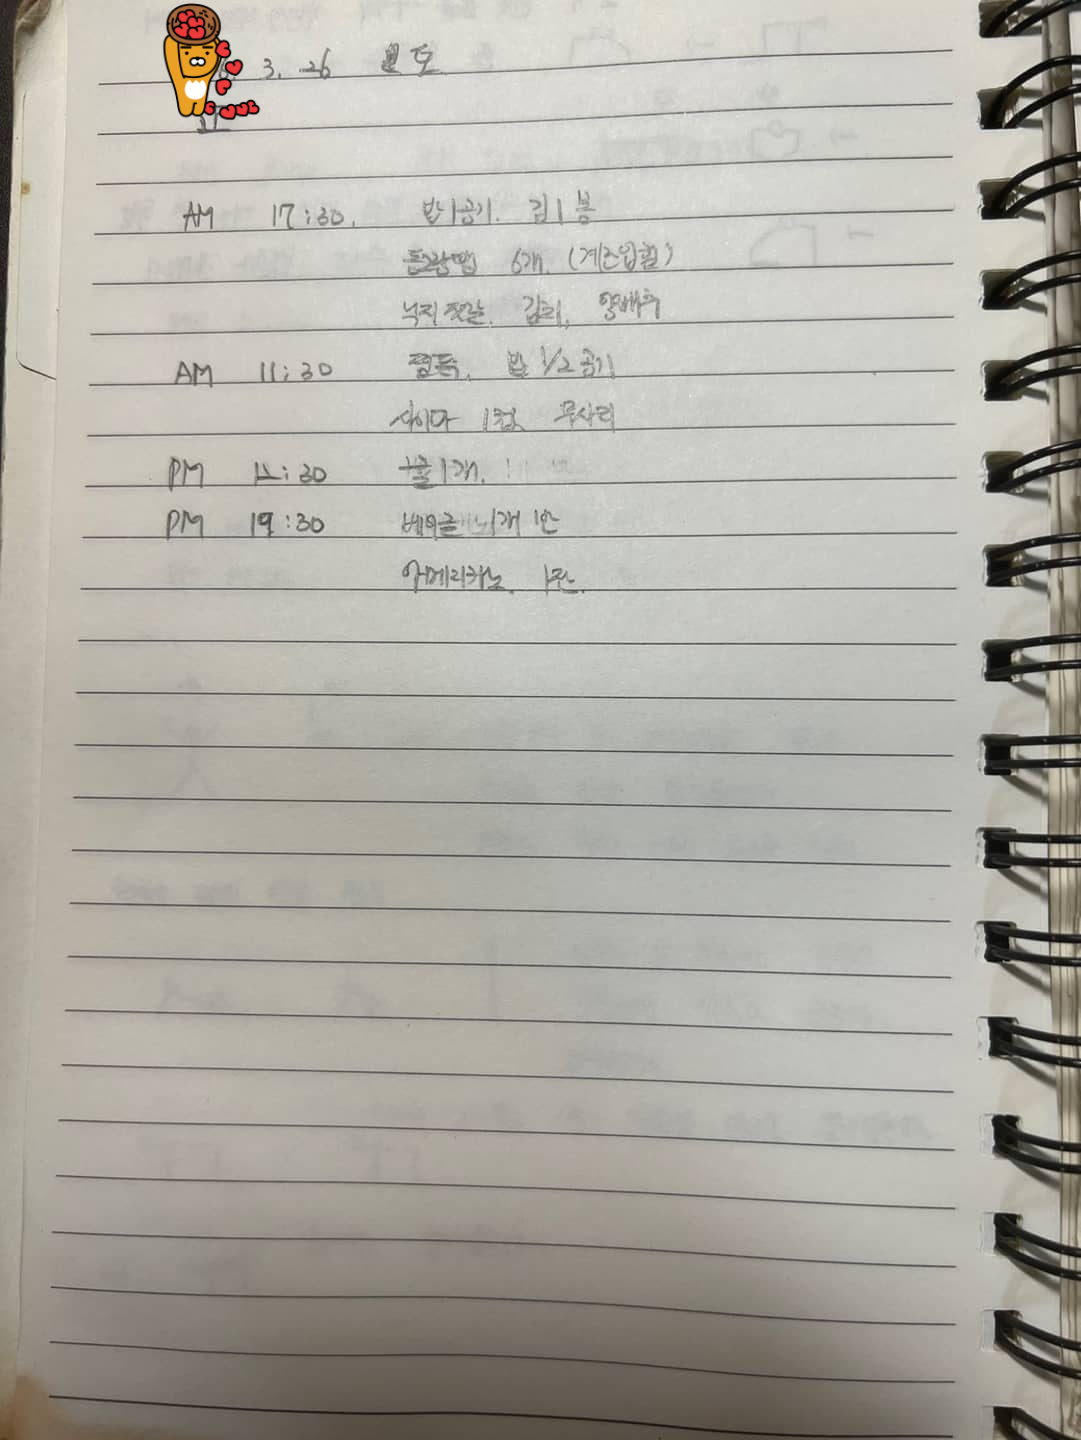 3. 26 토
AM 17:30. 밥1공기. 김1봉
6개. (계란입힘)
낙지젓갈. 김치. 양배추
AM 11:30 밥 1/2공기
사이다 1컵
PM 30 귤1개.
PM 19:30 베이글 1개 반
아메리카노. 1잔.